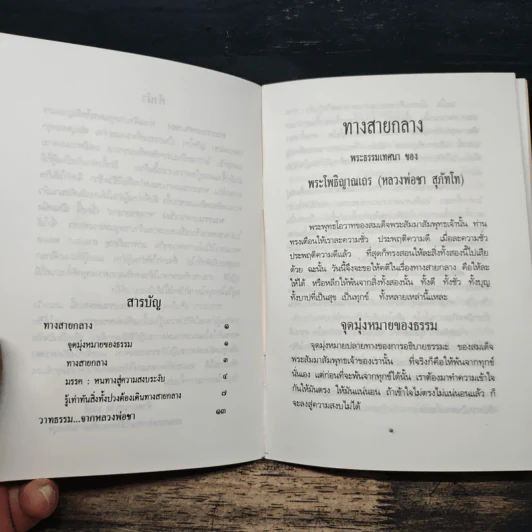 สารบัญ
ทางสายกลาง ๑
จุดมุ่งหมายของธรรม ๑
ทางสายกลาง ๓
มรรค : หนทางสู่ความสงบระงับ ๔
รู้เท่าทันสิ่งทั้งปวงต้องเดินทางสายกลาง ๗
วาทธรรม...จากหลวงพ่อชา ๑๓
ทางสายกลาง
พระธรรมเทศนา ของ
พระโพธิญาณเถร (หลวงพ่อชา สุภัทโท)
พระพุทธโอวาทของสมเด็จพระสัมมาสัมพุทธเจ้านั้น ท่าน
ทรงเตือนให้เราละความชั่ว ประพฤติความดี เมื่อละความชั่ว
ประพฤติความดีแล้ว ที่สุดก็ทรงสอนให้ละสิ่งทั้งสองนี้ไปเสีย
ด้วย ฉะนั้น วันนี้จึงจะขอให้คติในเรื่องทางสายกลาง คือให้ละ
ให้ได้ หรือหลีกให้พ้นจากสิ่งทั้งสองนั้น ทั้งดี ทั้งชั่ว ทั้งบุญ
ทั้งบาปที่เป็นสุข เป็นทุกข์ ทั้งหลายเหล่านี้แหละ
จุดมุ่งหมายของธรรม
จุดมุ่งหมายปลายทางของการอธิบายธรรมะ ของสมเด็จ
พระสัมมาสัมพุทธเจ้าของเรานั้น ที่จริงก็คือให้พ้นจากทุกข์
นั่นเอง แต่ก่อนที่จะพ้นจากทุกข์ได้นั้น เราต้องมาทำความเข้าใจ
กันให้มันตรง ให้มันแน่นอน ถ้าเข้าใจไม่ตรงไม่แน่นอนแล้ว ก็
จะลงสู่ความสงบไม่ได้